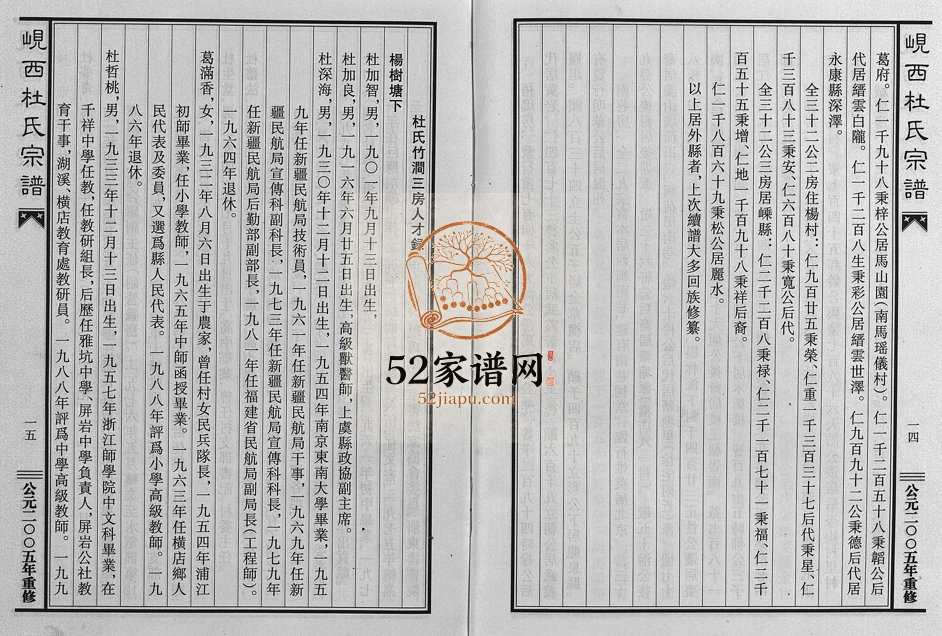 峴西杜氏宗譜
一四
公元二○○五年重修
葛府。仁一千九十八秉梓公居馬山園（南馬瑶儀村）。仁一千二百五十八秉韜公后
代居縉雲白隴。仁一千二百八生秉彩公居縉雲世澤。仁九百九十二公秉德后代居
永康縣深澤。
全三十二公二房住楊村：仁九百廿五秉榮、仁重一千三百三十七后代秉星、仁
千三百八十三秉安、仁六百八十秉寬公后代。
全三十二公三房居嵊縣：仁二千二百八秉禄、仁二千一百七十一秉福、仁二千
百五十五秉增、仁地一千百九十八秉祥后裔。
仁一千八百六十九秉松公居麗水。
以上居外縣者，上次續譜大多回族修纂。
杜氏竹澗三房人才録
楊樹塘下
杜加智，男，一九○一年九月十三日出生，
杜加良，男，一九一六年六月廿五日出生，高級獸醫師，上虞縣政協副主席。
杜深海，男，一九三○年十二月十二日出生，一九五四年南京東南大學畢業，一九五
九年任新疆民航局技術員，一九六一年任新疆民航局干事，一九六九年任新
疆民航局宣傳科副科長，一九七三年任新疆民航局宣傳科科長，一九七九年
任新疆民航局后勤部副部長，一九八一年任福建省民航局副局長（工程師）。
一九六四年退休。
葛滿香，女，一九三二年八月六日出生于農家，曾任村女民兵隊長，一九五四年浦江
初師畢業，任小學教師，一九六五年中師函授畢業。一九六三年任横店鄉人
民代表及委員，又選爲縣人民代表。一九八八年評爲小學高級教師。一九
八六年退休。
杜哲桃，男，一九三三年十二月十三日出生，一九五七年浙江師學院中文科畢業，在
千祥中學任教，任教研組長，后歷任雅坑中學、屏岩中學負責人，屏岩公社教
育干事，湖溪、横店教育處教研員。一九八八年評爲中學高級教師。一九九
峴西杜氏宗譜
一五
公元二○○五年重修
52家谱网
52jiapu.com